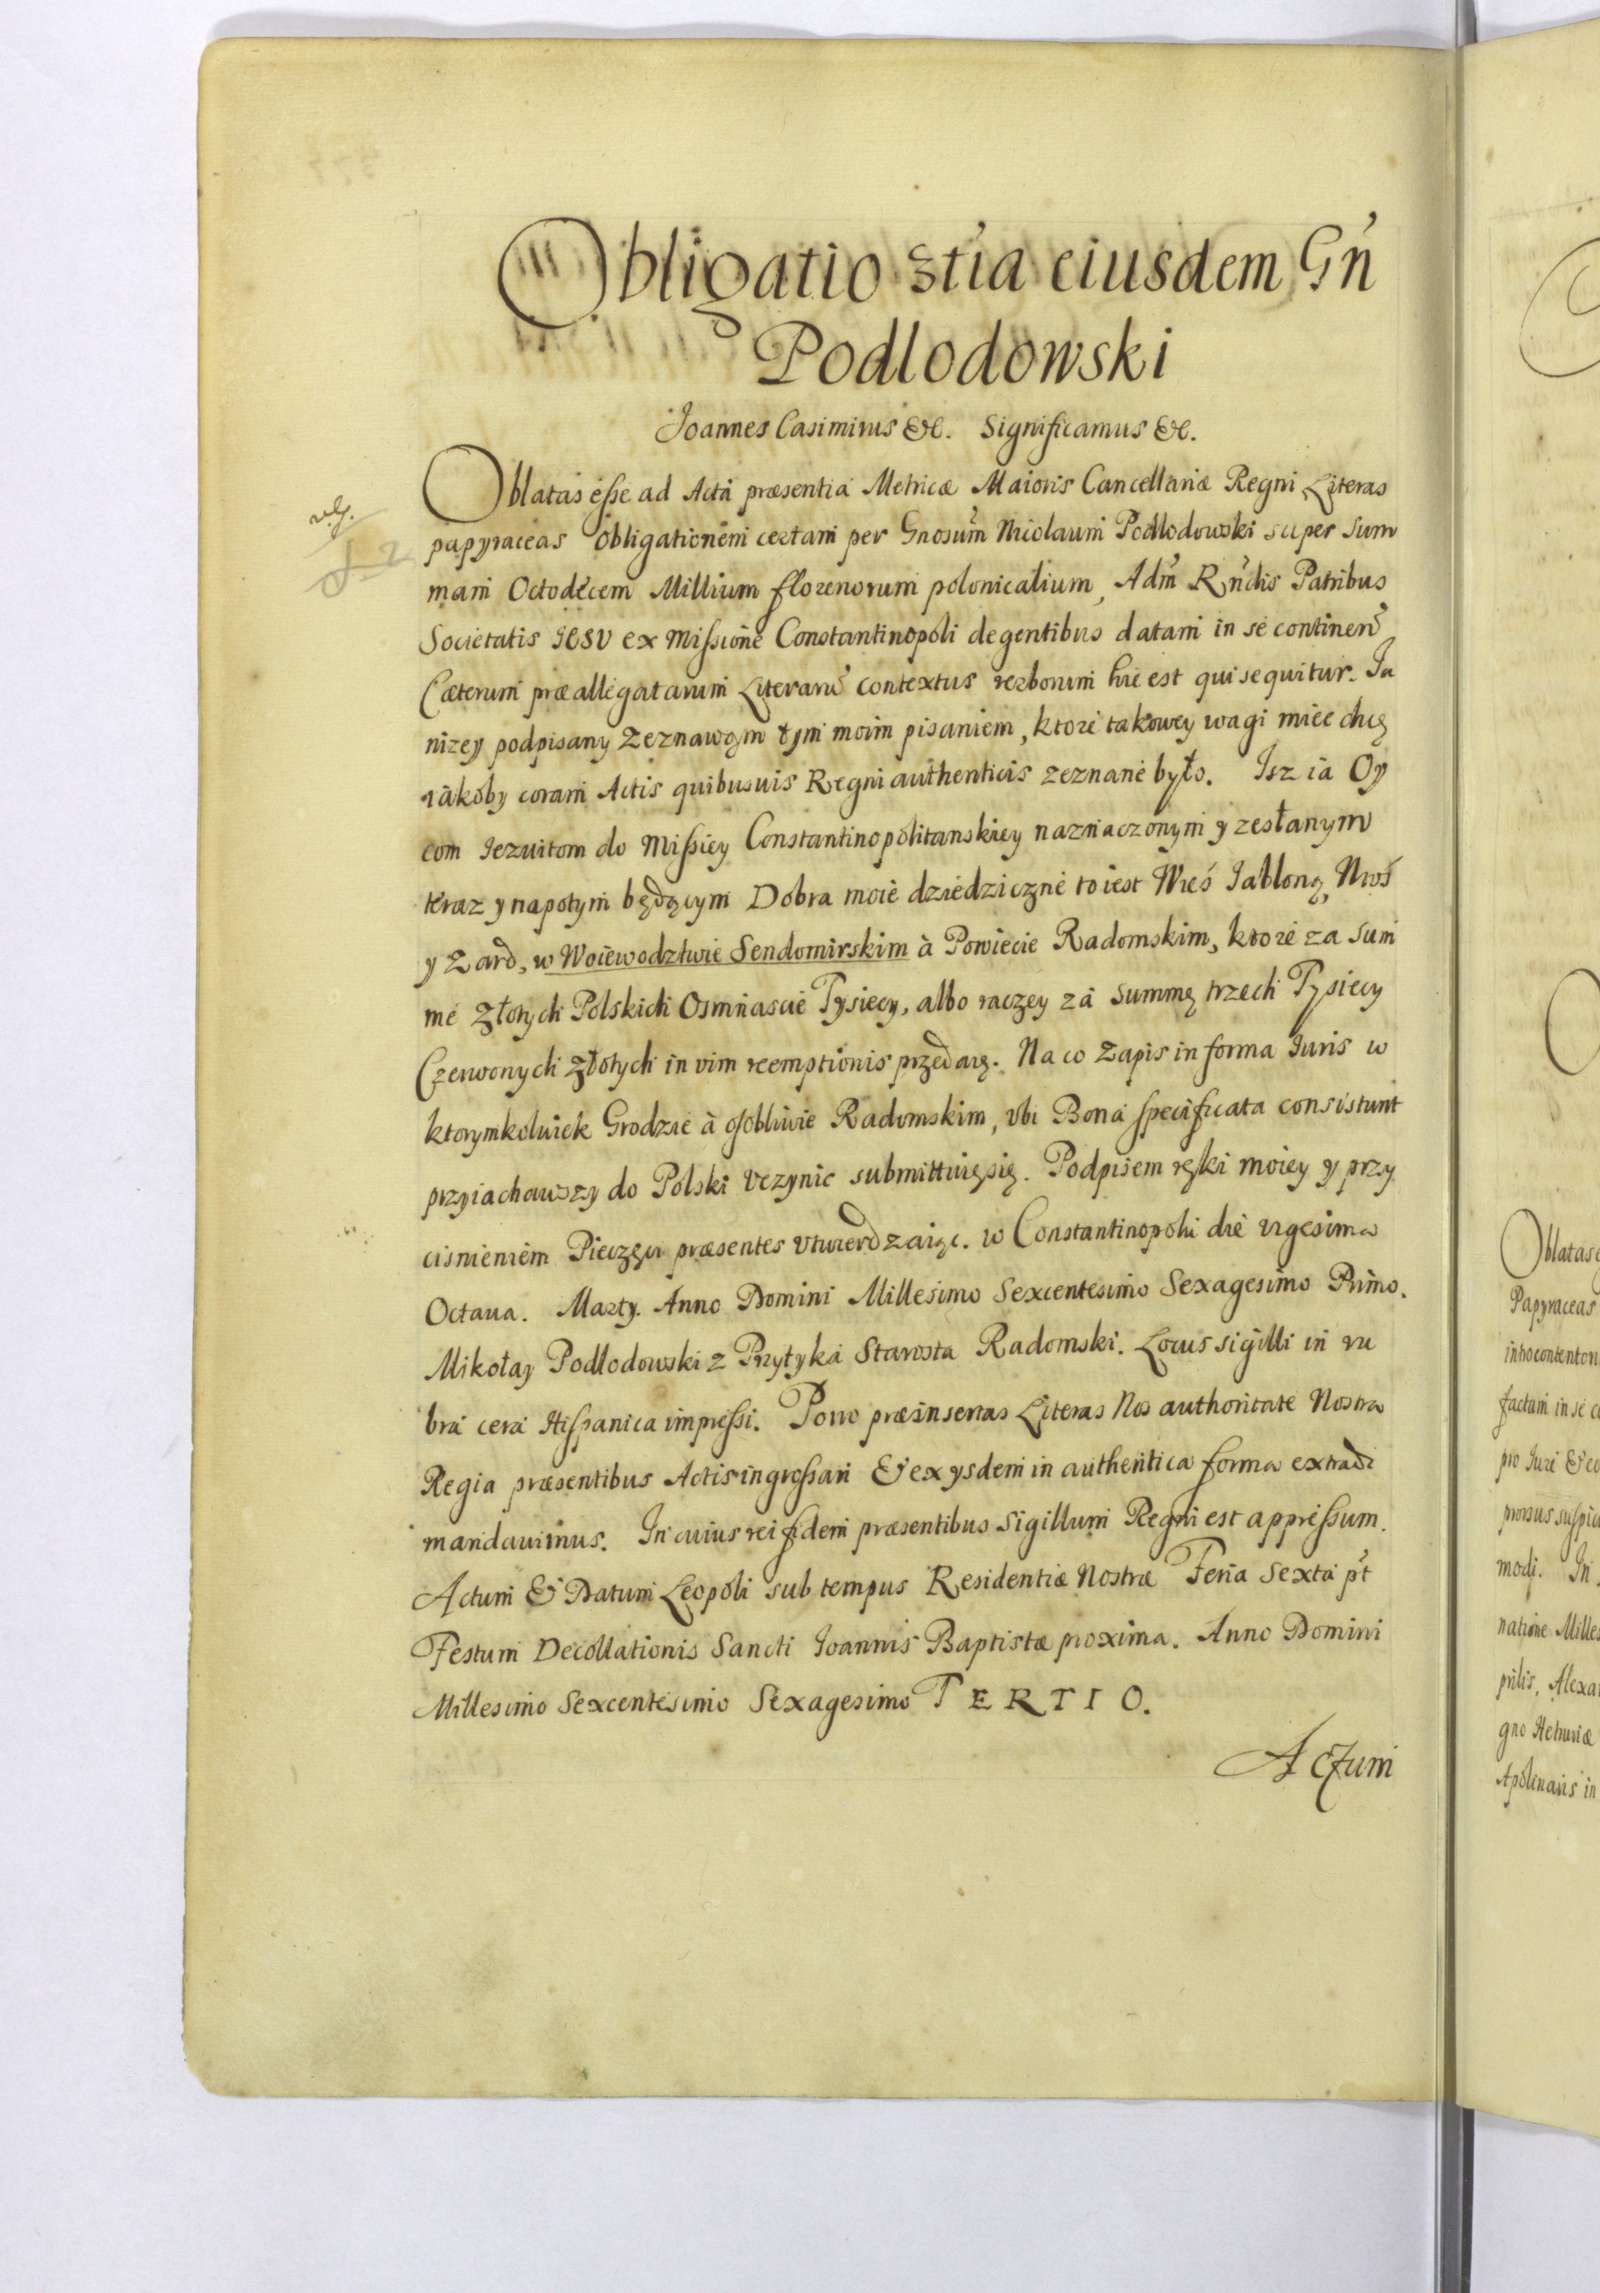 Obligatio 3tia eiusdem Gn̄
Podlodowski
Joannes Casimirus &c. Significamus &c.
Oblatas esse ad Acta præsentia Metricæ Maioris Cancellariæ Regni Literas
papyraceas obligationem certam per Gnosum Nicolaum Podlodowski super Sum
mam Octodecem Millium florenorum polonicalium, Adm̄ Rn̄dis Patribus
Societatis IESV ex Missione Constantinopoli degentibus datam in se continen̄
Cæterum præallegatarum Literaru contextus verborum hic est qui sequitur. Ia
nizey podpisany Zeznawąm tym moim pisaniem, ktore takowey wagi miec chcę
iakoby coram Actis quibusuis Regni authenticis zeznane było. Isz ia Oy
com Iezuitom do Missiey Constantinopolitanskiey naznaczonym y zesłanym
teraz y napotym będącym Dobra moie dziedziczne to iest Wieś Jablonę,
y Zard, w Woiewodztwie Sendomirskim à Powiecie Radomskim, ktore za Sum
me Złotych Polskich Osmnascie Tysiecy, albo raczey za Summę trzech Tysiecy
Czerwonych Złotych in vim reemptionis przedaię. Na co Zapis in forma Iuris w
ktorymkolwiek Grodzie à osobliwie Radomskim, vbi Bona specificata consistunt
przyiachawszy do Polski Vczynic submittuięsię. Podpisem ręki moiey y przy
cisnieniem Pieczęci præsentes vtwierdzaiąc. w Constantinopolu die vigesima
Octaua. Marty. Anno Domini Millesimo Sexcentesimo Sexagesimo Primo.
Mikołay Podlodowski z Przytyka Starosta Radomski. Locus sigilli in ru
bra cera Hispanica impressi. Porro præinsertas Literas Nos authoritate Nostra
Regia præsentibus Actis ingrossari & ex ysdem in authentica forma extradi
mandauimus. In cuius rei fidem præsentibus Sigillum Regni est appressum.
Actum & Datum Leopoli sub tempus Residentiæ Nostræ Feria Sexta pt̄
Festum Decollationis Sancti Ioannis Baptistæ proxima. Anno Domini
Millesimo Sexcentesimo Sexagesimo TERTIO.
Actum
Oblatas
Papyraceas
in hoc contenton
factam in se c
pro Iure & co
prorsus suspic
modi. In
natione Milles
prilis, Alexa
gno Hetruriæ
Apolinaris in